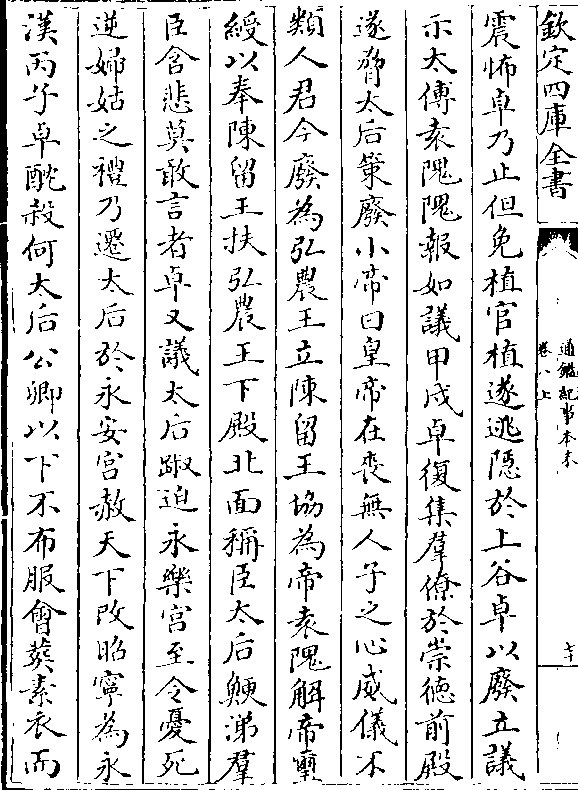 欽定四庫全書
通鑑紀事本末
卷八上
七十
震怖卓乃止但免植官植遂逃隱於上谷卓以廢立議
示太傅袁隗隗報如議甲戌卓復集羣僚於崇徳前殿
遂脅太后策廢小帝曰皇帝在喪無人子之心威儀不
類人君今廢為弘農王立陳留王協為帝袁隗解帝璽
綬以奉陳留王扶弘農王下殿北面稱臣太后鯁涕羣
臣含悲莫敢言者卓又議太后踧迫永樂宫至令憂死
逆婦姑之禮乃遷太后於永安宫赦天下改昭寧為永
漢丙子卓酖殺何太后公卿以下不布服會葬素衣而